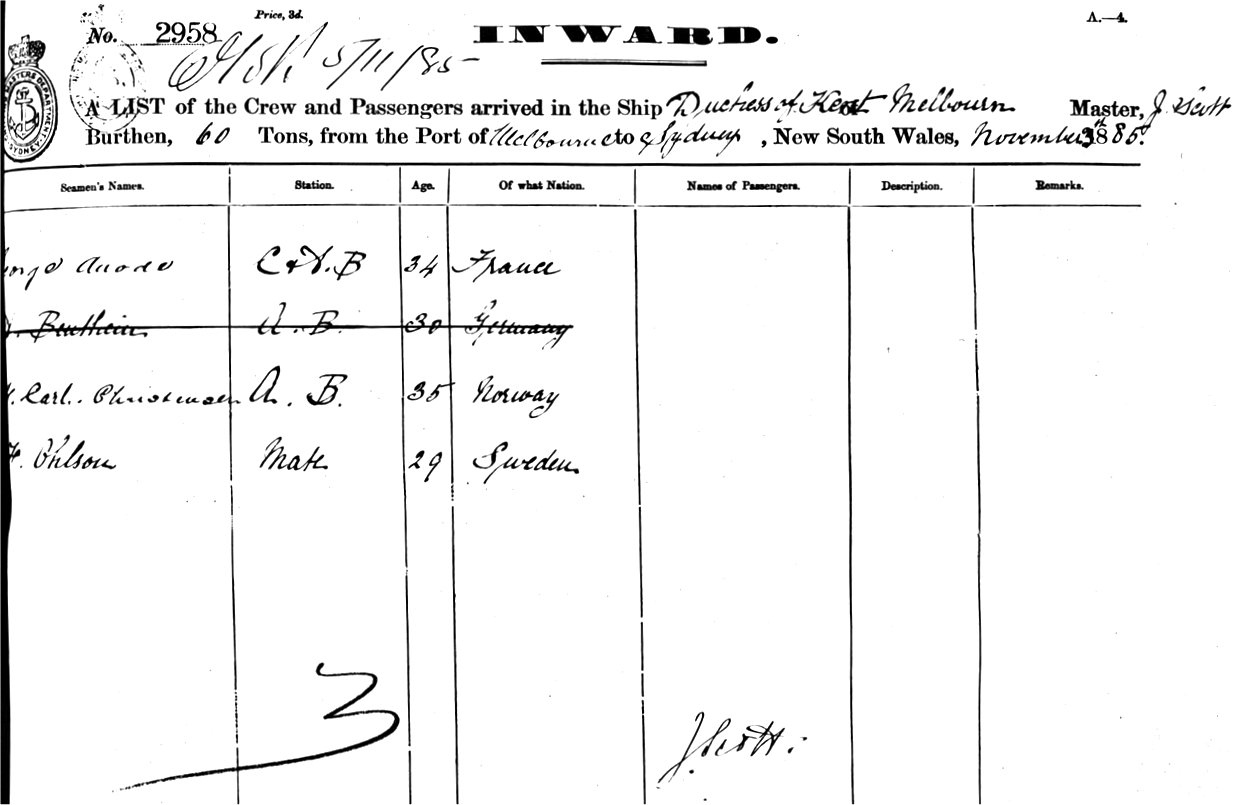 Price, 3d.
A.—4.
No. 2958
INWARD.
5/11/85
A LIST of the Crew and Passengers arrived in the Ship Duchess of Kent Melbourn Master, J. Scott
Burthen, 60 Tons, from the Port of Melbourne to Sydney, New South Wales, November 3th 1885.
SYDNEY
Seamen's Names. Station. Age. Of what Nation. Names of Passengers. Description. Remarks.
34 France
A. B. 30 Germany
Carl. Christensen A. B. 35 Norway
F. Ohlson Mate 29 Sweden
3
J. Scott.